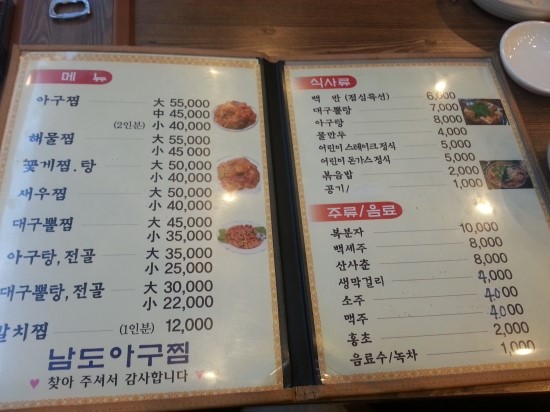 메 뉴
아구찜 大 55,000
中 45,000
(2인분) 小 40,000
해물찜 大 55,000
小 45,000
꽃게찜.탕 大 50,000
小 40,000
새우찜 大 50,000
小 40,000
대구뽈찜 大 45,000
小 35,000
아구탕, 전골 大 35,000
小 25,000
대구뽈탕, 전골 大 30,000
小 22,000
갈치찜 (1인분) 12,000
남도아구찜
♥ 찾아 주셔서 감사합니다 ♥
식사류
백 반 (점심특선) 6,000
대구뽈탕 7,000
아구탕 8,000
물만두 4,000
어린이 스테이크 정식 5,000
어린이 돈가스 정식 5,000
볶음밥 2,000
공기/ 1,000
주류/음료
복분자 10,000
백세주 8,000
산사춘 8,000
생막걸리 4,000
소주 4,000
맥주 4,000
홍초 2,000
음료수/녹차 1,000